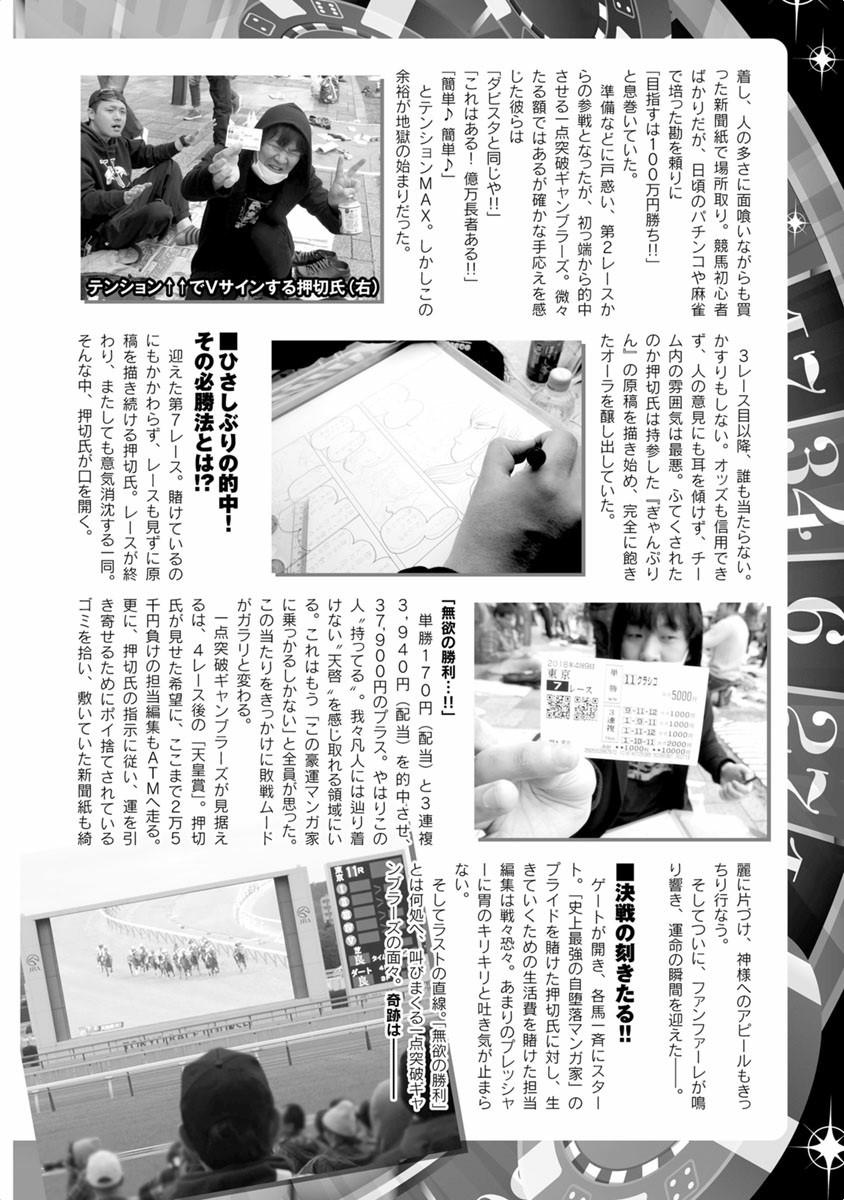 着し、人の多さに面喰いながらも買
った新聞紙で場所取り。競馬初心者
ばかりだが、日頃のパチンコや麻雀
で培った勘を頼りに
「目指すは100万円勝ち!!」
と息巻いていた。
準備などに戸惑い、第2レースか
らの参戦となったが、初っ端から的中
させる一点突破ギャンブラーズ。微々
たる額ではあるが確かな手応えを感
じた彼らは
「ダビスタと同じや!!」
「これはある! 億万長者ある!!」
「簡単♪ 簡単♪」
とテンションMAX。しかしこの
余裕が地獄の始まりだった。
テンション↑↑でVサインする押切氏(右)
3レース目以降、誰も当たらない。
かすりもしない。オッズも信用でき
ず、人の意見にも耳を傾けず、チー
ム内の雰囲気は最悪。ふてくされた
のか押切氏は持参した『ぎゃんぷり
ん』の原稿を描き始め、完全に飽き
たオーラを醸し出していた。
■ひさしぶりの的中!
その必勝法とは!?
迎えた第7レース。賭けているの
にもかかわらず、レースも見ずに原
稿を描き続ける押切氏。レースが終
わり、またしても意気消沈する一同。
そんな中、押切氏が口を開く。
「無欲の勝利…!!」
単勝170円(配当)と3連複
3,940円(配当)を的中させ、
37,900円のプラス。やはりこの
人〝持ってる〟。我々凡人には辿り着
けない〝天啓〟を感じ取れる領域にい
る。これはもう「この豪運マンガ家
に乗っかるしかない」と全員が思った。
この当たりをきっかけに敗戦ムード
がガラリと変わる。
一点突破ギャンブラーズが見据え
るは、4レース後の「天皇賞」。押切
氏が見せた希望に、ここまで2万5
千円負けの担当編集もATMへ走る。
更に、押切氏の指示に従い、運を引
き寄せるためにポイ捨てされている
ゴミを拾い、敷いていた新聞紙も綺
麗に片づけ、神様へのアピールもきっ
ちり行なう。
そしてついに、ファンファーレが鳴
り響き、運命の瞬間を迎えた――。
■決戦の刻きたる!!
ゲートが開き、各馬一斉にスター
ト。「史上最強の自堕落マンガ家」の
プライドを賭けた押切氏に対し、生
きていくための生活費を賭けた担当
編集は戦々恐々。あまりのプレッシャ
ーに胃のキリキリと吐き気が止まら
ない。
そしてラストの直線。「無欲の勝利」
とは何処へ、叫びまくる一点突破ギャ
ンブラーズの面々。奇跡は―――
東京
7レース
単勝
11 クラシコ
5000円
3連複
9-11-12
1000円
1-9-11
1000円
1-11-12
1000円
1-10-11
2000円
東京 11R
芝 良
ダート 良
JRA
34
6
27